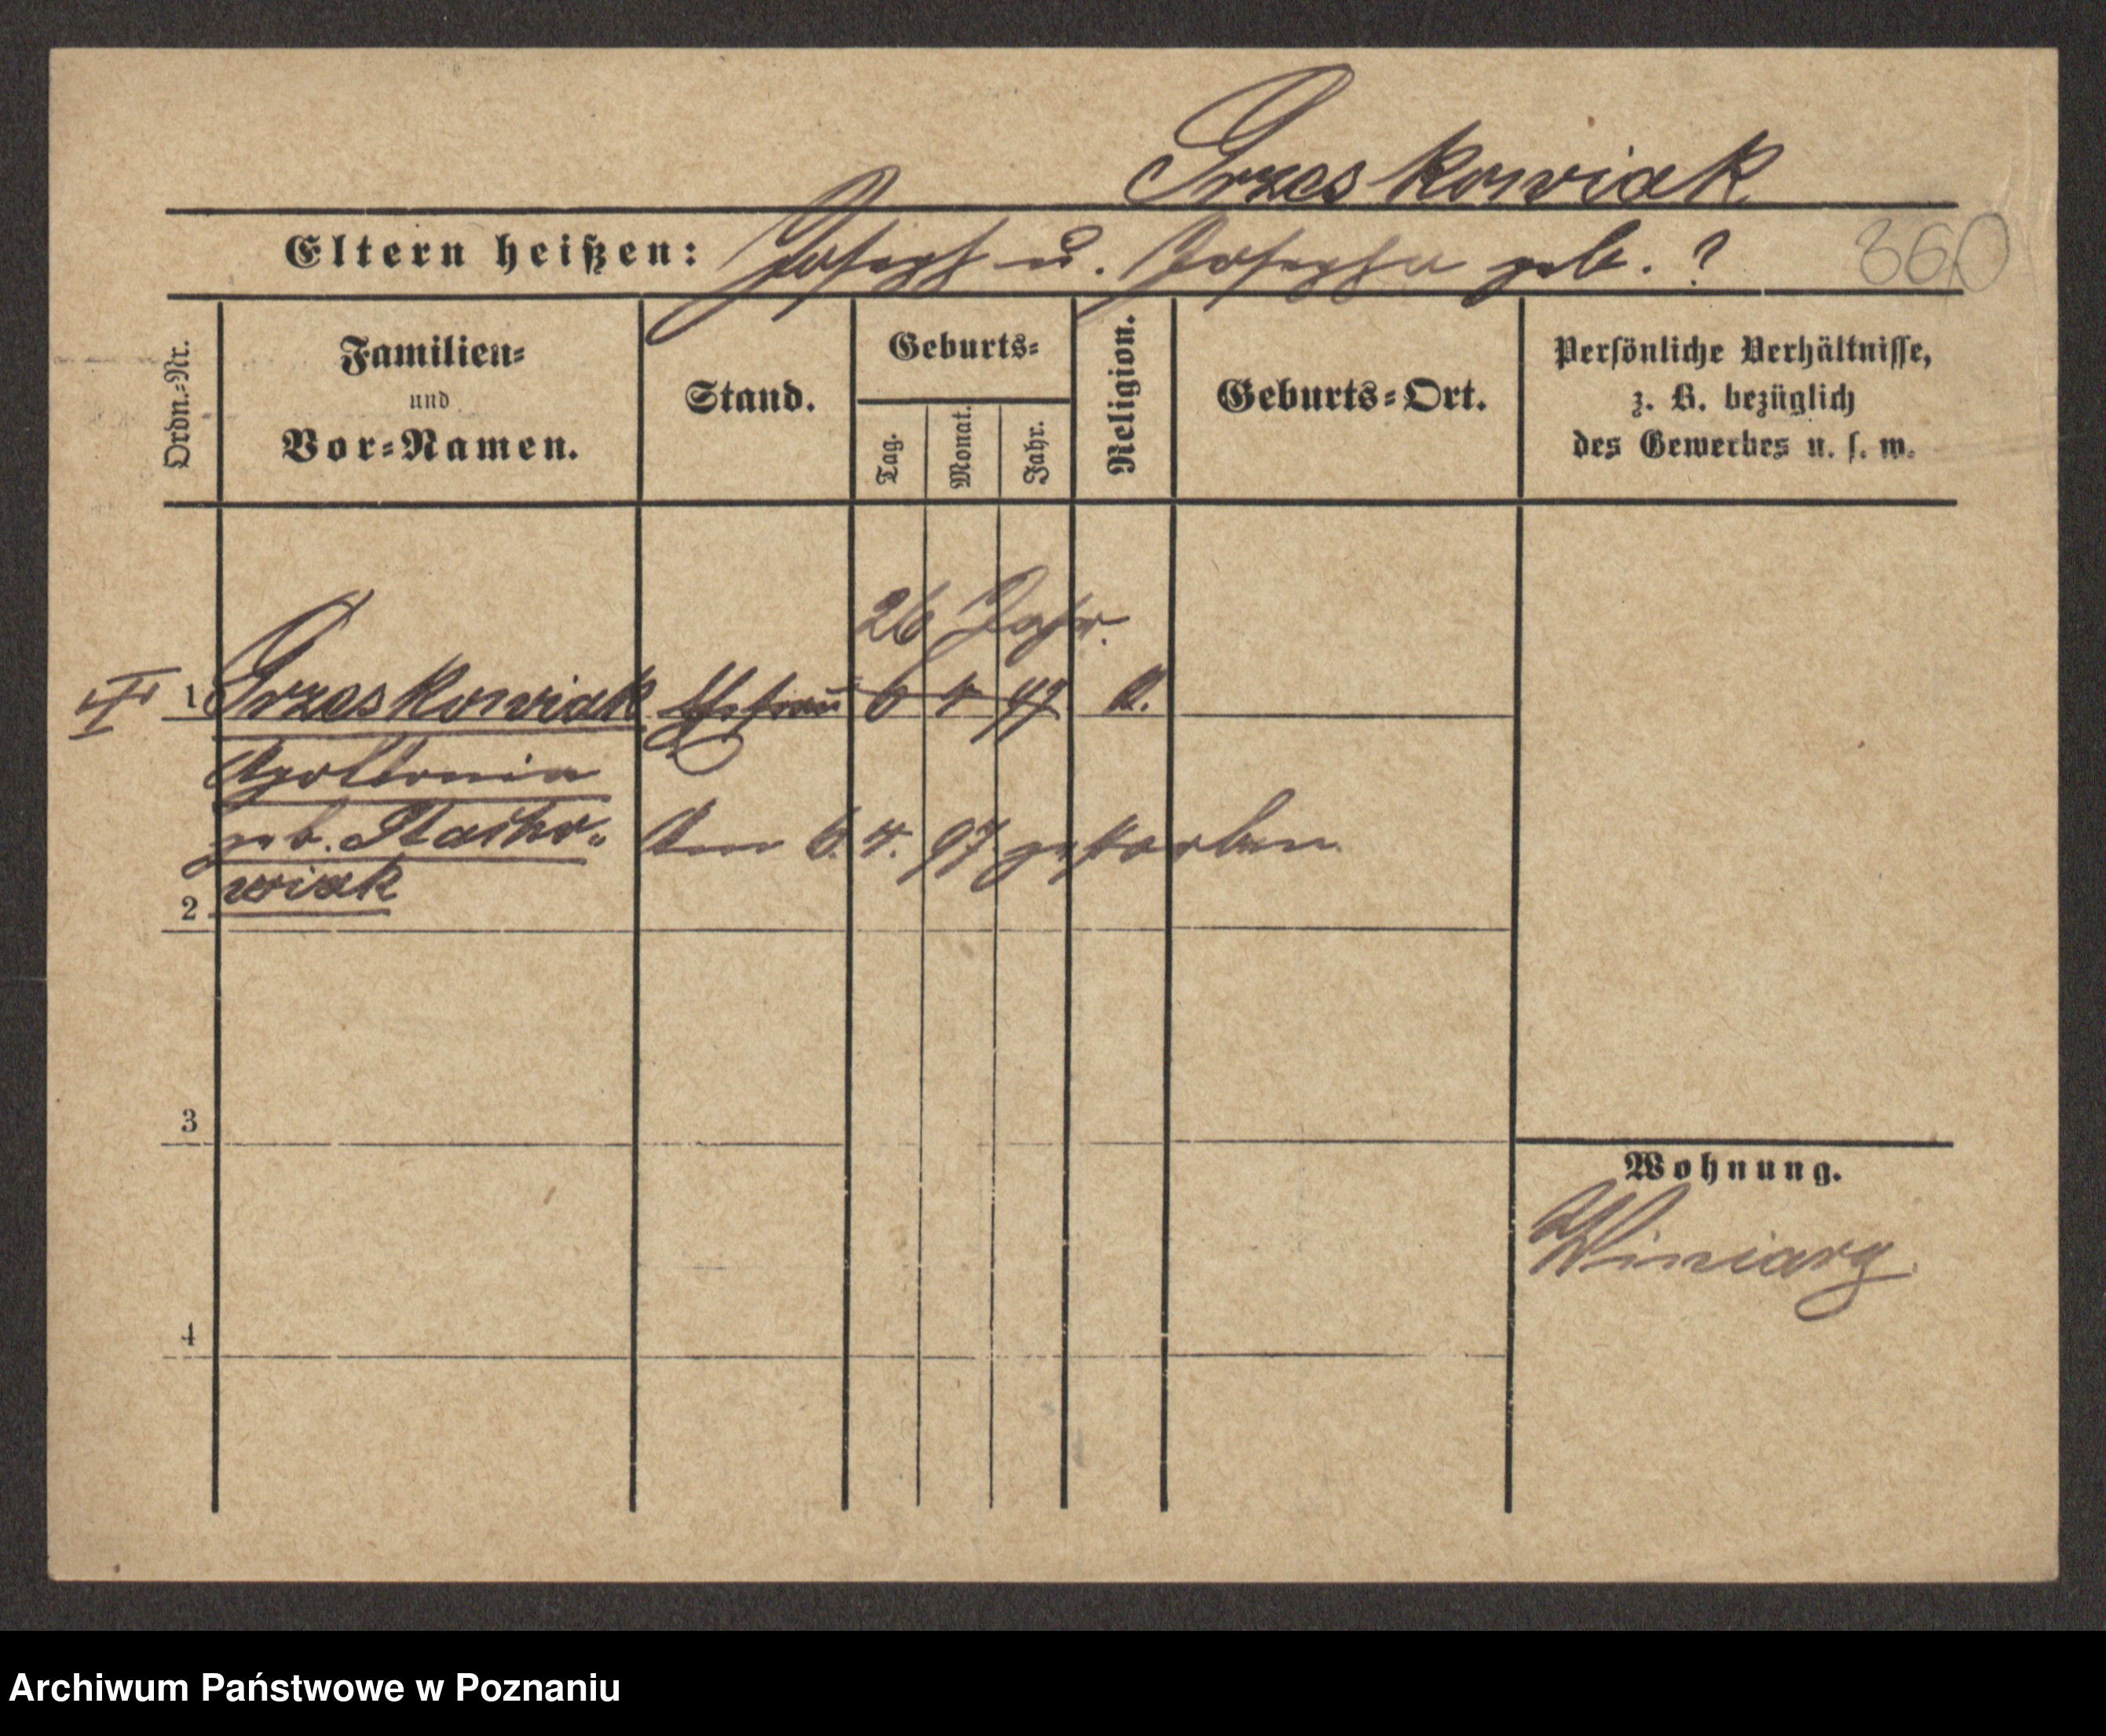 Grzeskowiak
Eltern heißen: Joseph u. Josepha geb. ?
360
Ordn.-Nr.
Familien-
und
Vor-Namen.
Stand.
Geburts-
Tag.
Monat.
Jahr.
Religion.
Geburts-Ort.
Persönliche Verhältnisse,
z. B. bezüglich
des Gewerbes u. s. w.
26 Jahr.
1 Grzeskowiak Ehefrau 6 4 97 k.
Apollonia
geb. Stacho-
wiak
Am 6. 4. 97 gestorben.
2
3
4
Wohnung.
Winiary
Archiwum Państwowe w Poznaniu